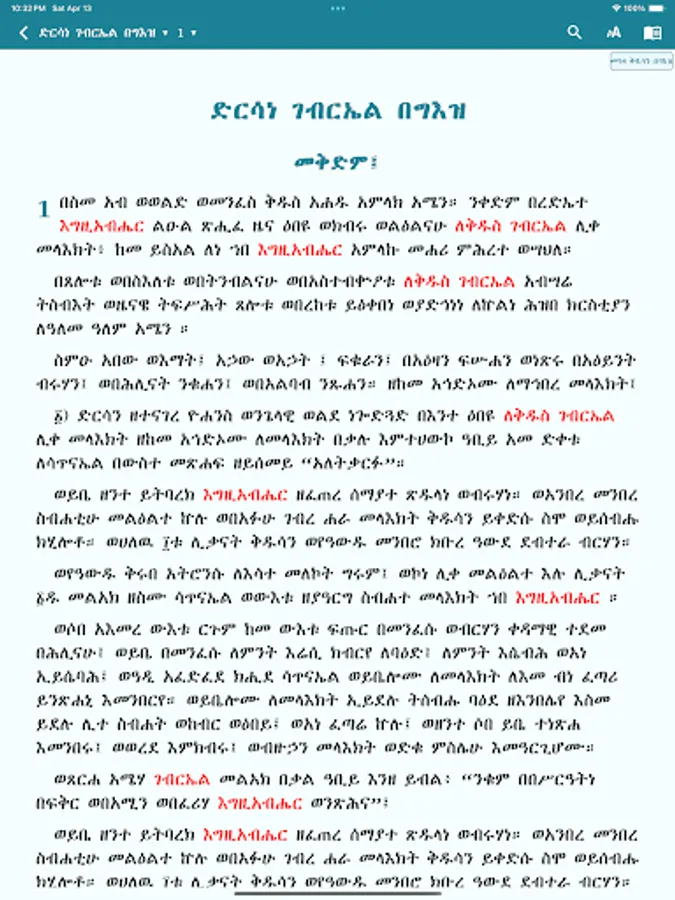 10:32 PM Sat Apr 13
100%
ድርሳነ ገብርኤል በግእዝ 1
ድርሳነ ገብርኤል በግእዝ
መቅድም፤
1 በስመ አብ ወወልድ ወመንፈስ ቅዱስ አሐዱ አምላክ አሜን። ንቀድም በረድኤተ
እግዚአብሔር ልዑል ጽሒፈ ዜና ዕበዩ ወክብሩ ወልዕልናሁ ለቅዱስ ገብርኤል ሊቀ
መላእክት፤ ከመ ይስአል ለነ ኀበ እግዚአብሔር አምላኩ መሐሪ ምሕረተ ወሣህለ።
በጸሎቱ ወበስእለቱ ወበትንብልናሁ ወበአስተብቍዖቱ ለቅዱስ ገብርኤል አብሣሬ
ትስብእት ወዜናዌ ትፍሥሕት ጸሎቱ ወበረከቱ ይዕቀበነ ወያድኅነነ ለኵልነ ሕዝበ ክርስቲያን
ለዓለመ ዓለም አሜን ።
ስምዑ አበው ወእማት፤ አኃው ወአኃት ፤ ፍቁራን፤ በእዕዛን ፍሡሐን ወነጽሩ በአዕይንት
ብሩሃን፤ ወበሕሊናት ንቁሐን፤ ወበአልባብ ንጹሐን። ዘከመ አኅድኦሙ ለማኅበረ መላእክት፤
፩) ድርሳን ዘተናገረ ዮሐንስ ወንጌላዊ ወልደ ነጐድጓድ በእንተ ዕበዩ ለቅዱስ ገብርኤል
ሊቀ መላእክት ዘከመ አኅድኦሙ ለመላእክት በቃሉ እምተሀውኮ ዓቢይ አመ ድቀቱ
ለሳጥናኤል በውስተ መጽሐፍ ዘይሰመይ “አለትቃርፉ”።
ወይቤ ዘንተ ይትባረክ እግዚአብሔር ዘፈጠረ ሰማያተ ጽዱላነ ወብሩሃነ። ወአንበረ መንበረ
ስብሐቲሁ መልዕልተ ኵሉ ወበአፉሁ ገብረ ሐራ መላእክት ቅዱሳን ይቀድሱ ስሞ ወይሰብሑ
ክሂሎቶ። ወሀለዉ ፲ቱ ሊቃናት ቅዱሳን ወየዓውዱ መንበሮ ክቡረ ዓውደ ደብተራ ብርሃን።
ወየዓውዱ ቅሩበ አትሮንሱ ለእሳተ መለኮት ግሩም፤ ወኮነ ሊቀ መልዕልተ እሉ ሊቃናት
፩ዱ መልአክ ዘስሙ ሳጥናኤል ወውእቱ ዘያዓርግ ስብሐተ መላእክት ኀበ እግዚአብሔር ።
ወሶበ አእመረ ውእቱ ርጉም ከመ ውእቱ ፍጡር በመንፈሱ ወብርሃን ቀዳማዊ ተደመ
በሕሊናሁ፤ ወይቤ በመንፈሱ ለምንት እሬሲ ክብርየ ለባዕድ፤ ለምንት እሴብሕ ወአነ
ኢይሴባሕ፤ ወዓዲ አፈድፈደ ክሒደ ሳጥናኤል ወይቤሎሙ ለመላእክት ለእመ ብነ ፈጣሪ
ይንጽሐኒ እመንበርየ። ወይቤሎሙ ለመላእክት ኢይደሉ ትሰብሑ ባዕደ ዘእንበሌየ እስመ
ይደሉ ሊተ ስብሐት ወክብር ወዕበይ፤ ወአነ ፈጣሬ ኵሉ፤ ወዘንተ ሶበ ይቤ ተነጽሐ
እመንበሩ፤ ወወረደ እምክብሩ፤ ወብዙኃን መላእክት ወድቁ ምስሌሁ እመዓርጊሆሙ።
ወጸርሐ አሜሃ ገብርኤል መልአክ በቃል ዓቢይ እንዘ ይብል፡ “ንቁም በበሥርዓትነ
በፍቅር ወበአሚን ወበፈሪሃ እግዚአብሔር ወንጽሕና”፤
ወይቤ ዘንተ ይትባረክ እግዚአብሔር ዘፈጠረ ሰማያተ ጽዱላነ ወብሩሃነ። ወአንበረ መንበረ
ስብሐቲሁ መልዕልተ ኵሉ ወበአፉሁ ገብረ ሐራ መላእክት ቅዱሳን ይቀድሱ ስሞ ወይሰብሑ
ክሂሎቶ። ወሀለዉ ፲ቱ ሊቃናት ቅዱሳን ወየዓውዱ መንበሮ ክቡረ ዓውደ ደብተራ ብርሃን።